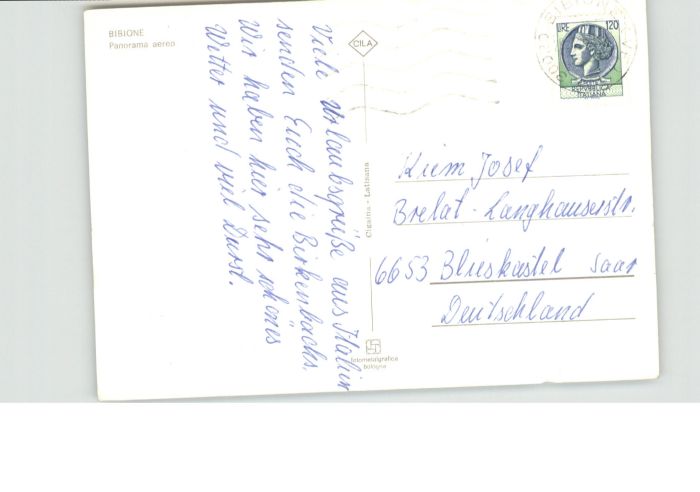 BIBIONE
Panorama aerea
Viele Urlaubsgrüße aus Italien
senden Euch die Birkenbachs.
Wir haben hier sehr schönes
Wetter und viel Durst.
CILA
Cigaina - Latisana
fotometalgrafica
bologna
LIRE 120
REPUBBLICA
ITALIANA
BIBIONE
Kiem Josef
Brelat-Langhauserstr.
6653 Blieskastel Saar
Deutschland